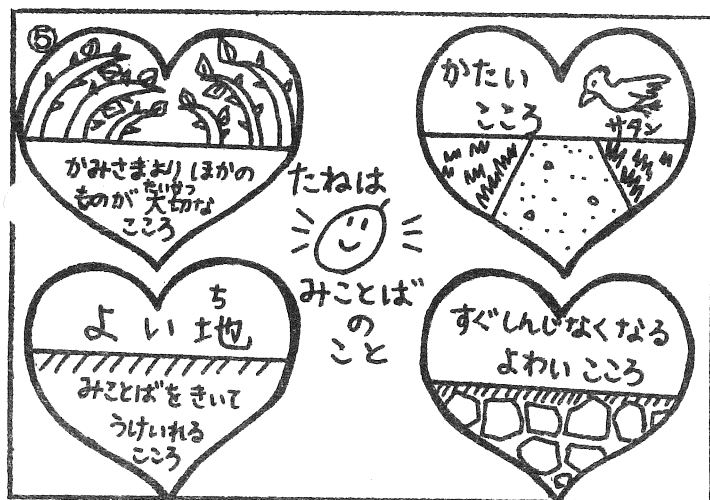 ⑤
かみさまより ほかの
ものが 大切な
たいせつ
こころ
かたい
こころ
サタン
たねは
みことば
の
こと
よい地
ち
みことばを きいて
うけいれる
こころ
すぐしんじなくなる
よわい こころ